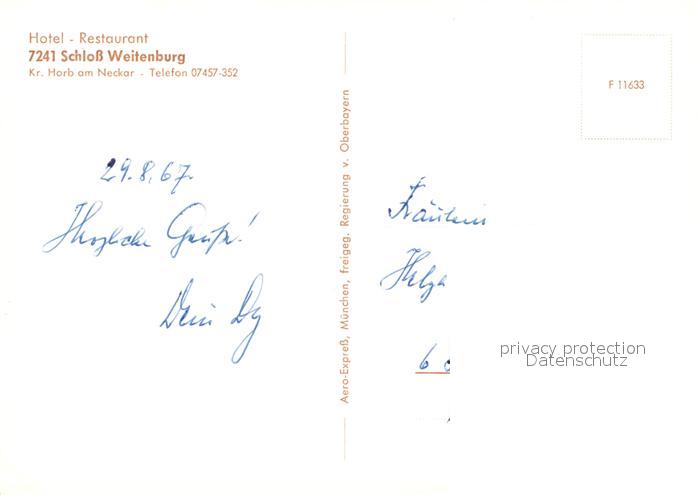 Hotel - Restaurant
7241 Schloß Weitenburg
Kr. Horb am Neckar - Telefon 07457-352
29.8.67.
Herzliche Grüße!
Dein
Aero-Expreß, München, freigeg. Regierung v. Oberbayern
F 11633
Fräulein
Helga
6
privacy protection
Datenschutz